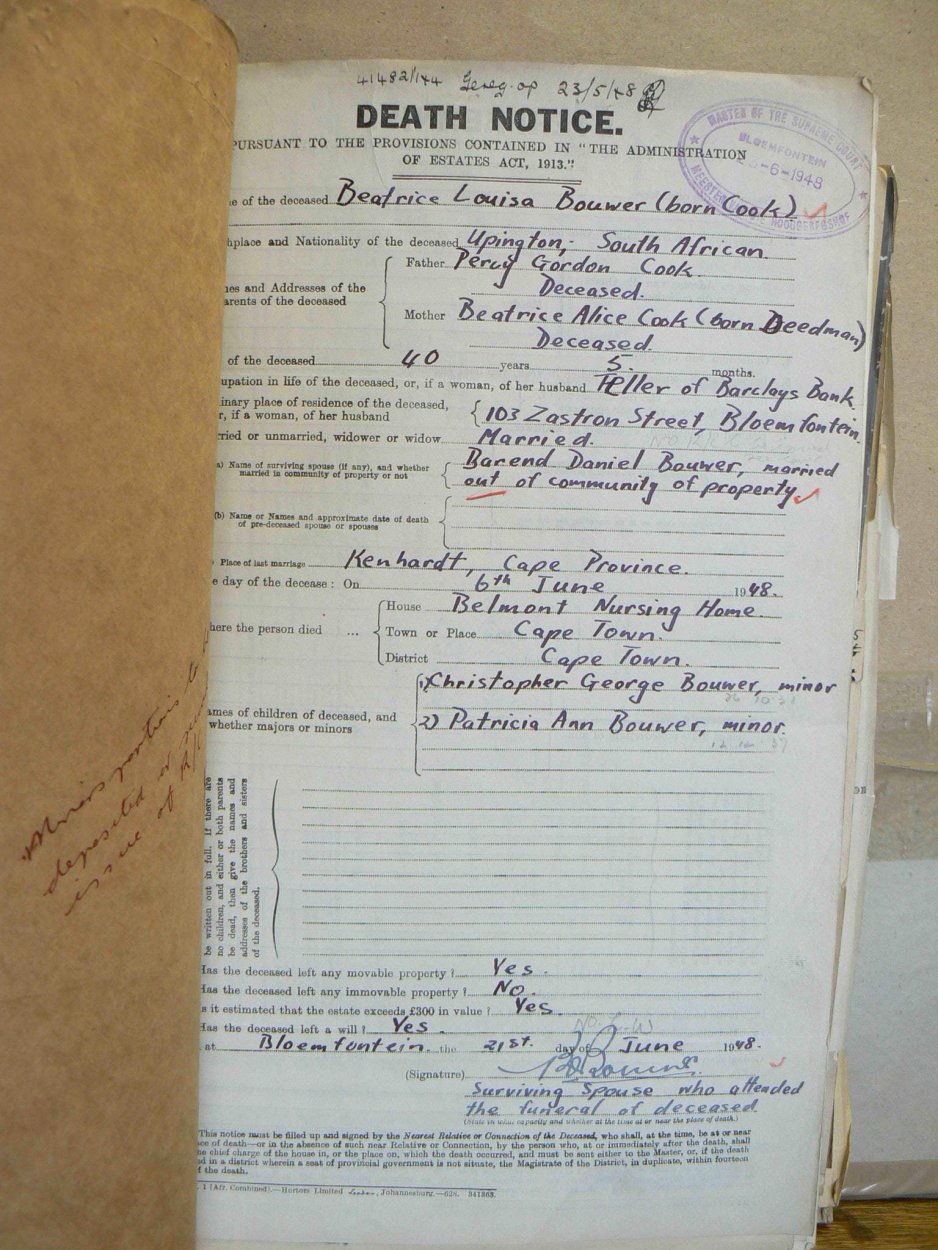 41482/144 Gereg. op 23/5/48
DEATH NOTICE.
PURSUANT TO THE PROVISIONS CONTAINED IN "THE ADMINISTRATION
OF ESTATES ACT, 1913."
MASTER OF THE SUPREME COURT
BLOEMFONTEIN
-6-1948
e of the deceased Beatrice Louisa Bouwer (born Cook)
hplace and Nationality of the deceased Upington, - South African
nes and Addresses of the
arents of the deceased
Father Percy Gordon Cook.
Deceased.
Mother Beatrice Alice Cook (born Deedman)
Deceased
of the deceased 40 years 5. months.
upation in life of the deceased, or, if a woman, of her husband Teller of Barclays Bank
inary place of residence of the deceased,
r, if a woman, of her husband
103 Zastron Street, Bloemfontein.
rried or unmarried, widower or widow Married.
a) Name of surviving spouse (if any), and whether
married in community of property or not
Barend Daniel Bouwer, married
out of community of property
(b) Name or Names and approximate date of death
of pre-deceased spouse or spouses
Place of last marriage Kenhardt, Cape Province.
e day of the decease : On 6th June 1948.
here the person died ...
House Belmont Nursing Home.
Town or Place Cape Town.
District Cape Town.
ames of children of deceased, and
whether majors or minors
1) Christopher George Bouwer, minor
2) Patricia Ann Bouwer, minor.
be written out in full. If there are
no children, and either or both parents
be dead, then give the names and
addresses of the brothers and sisters
of the deceased.
Has the deceased left any movable property ? Yes.
Has the deceased left any immovable property ? No.
s it estimated that the estate exceeds £300 in value ? Yes.
Has the deceased left a will ? Yes.
at Bloemfontein. the 21st. day of June 1948.
(Signature)
Surviving Spouse who attended
the funeral of deceased
(State in what capacity and whether at the time at or near the place of death.)
This notice must be filled up and signed by the Nearest Relative or Connection of the Deceased, who shall, at the time, be at or near
ce of death—or in the absence of such near Relative or Connection, by the person who, at or immediately after the death, shall
he chief charge of the house in, or the place on, which the death occurred, and must be sent either to the Master, or, if the death
ed in a district wherein a seat of provincial government is not situate, the Magistrate of the District, in duplicate, within fourteen
f the death.
. 1 (Afr. Combined).—Hortors Limited Johannesburg.—628. 341363.
deposited